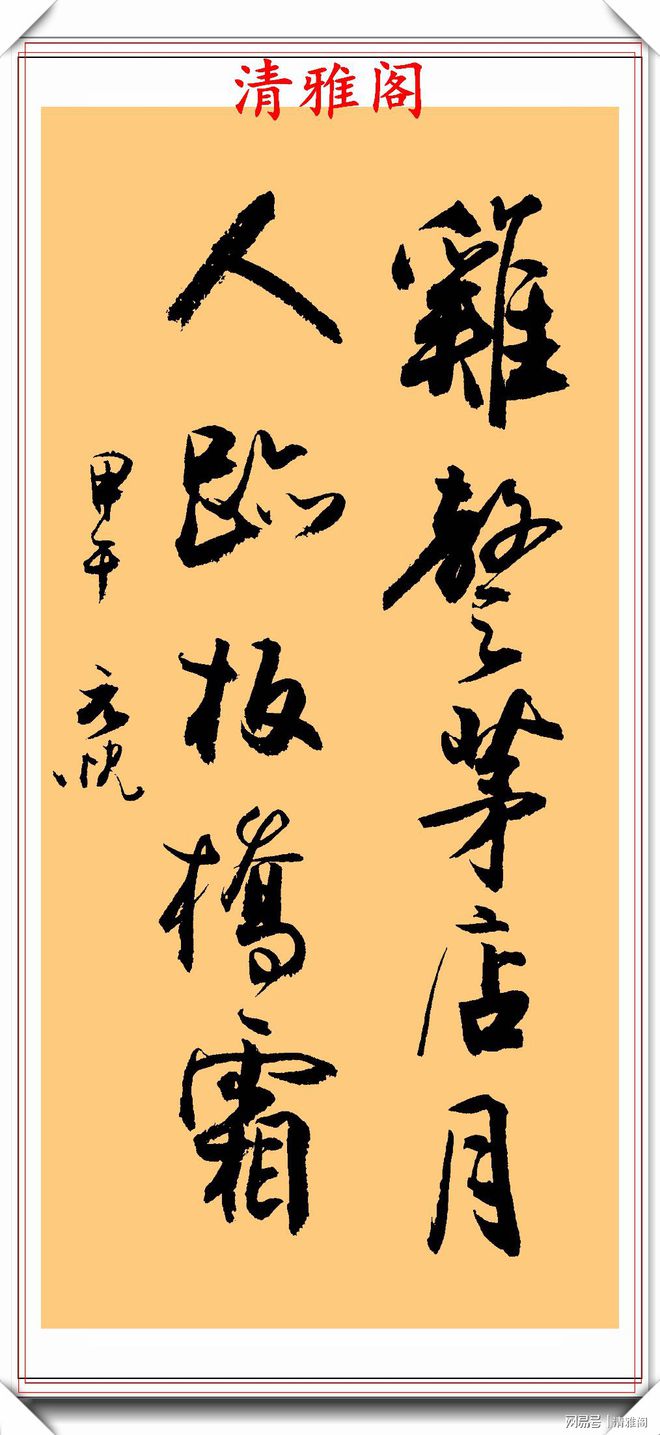 清雅阁
雞聲茅店月
人跡板橋霜
甲午 元悅
网易号 | 清雅阁